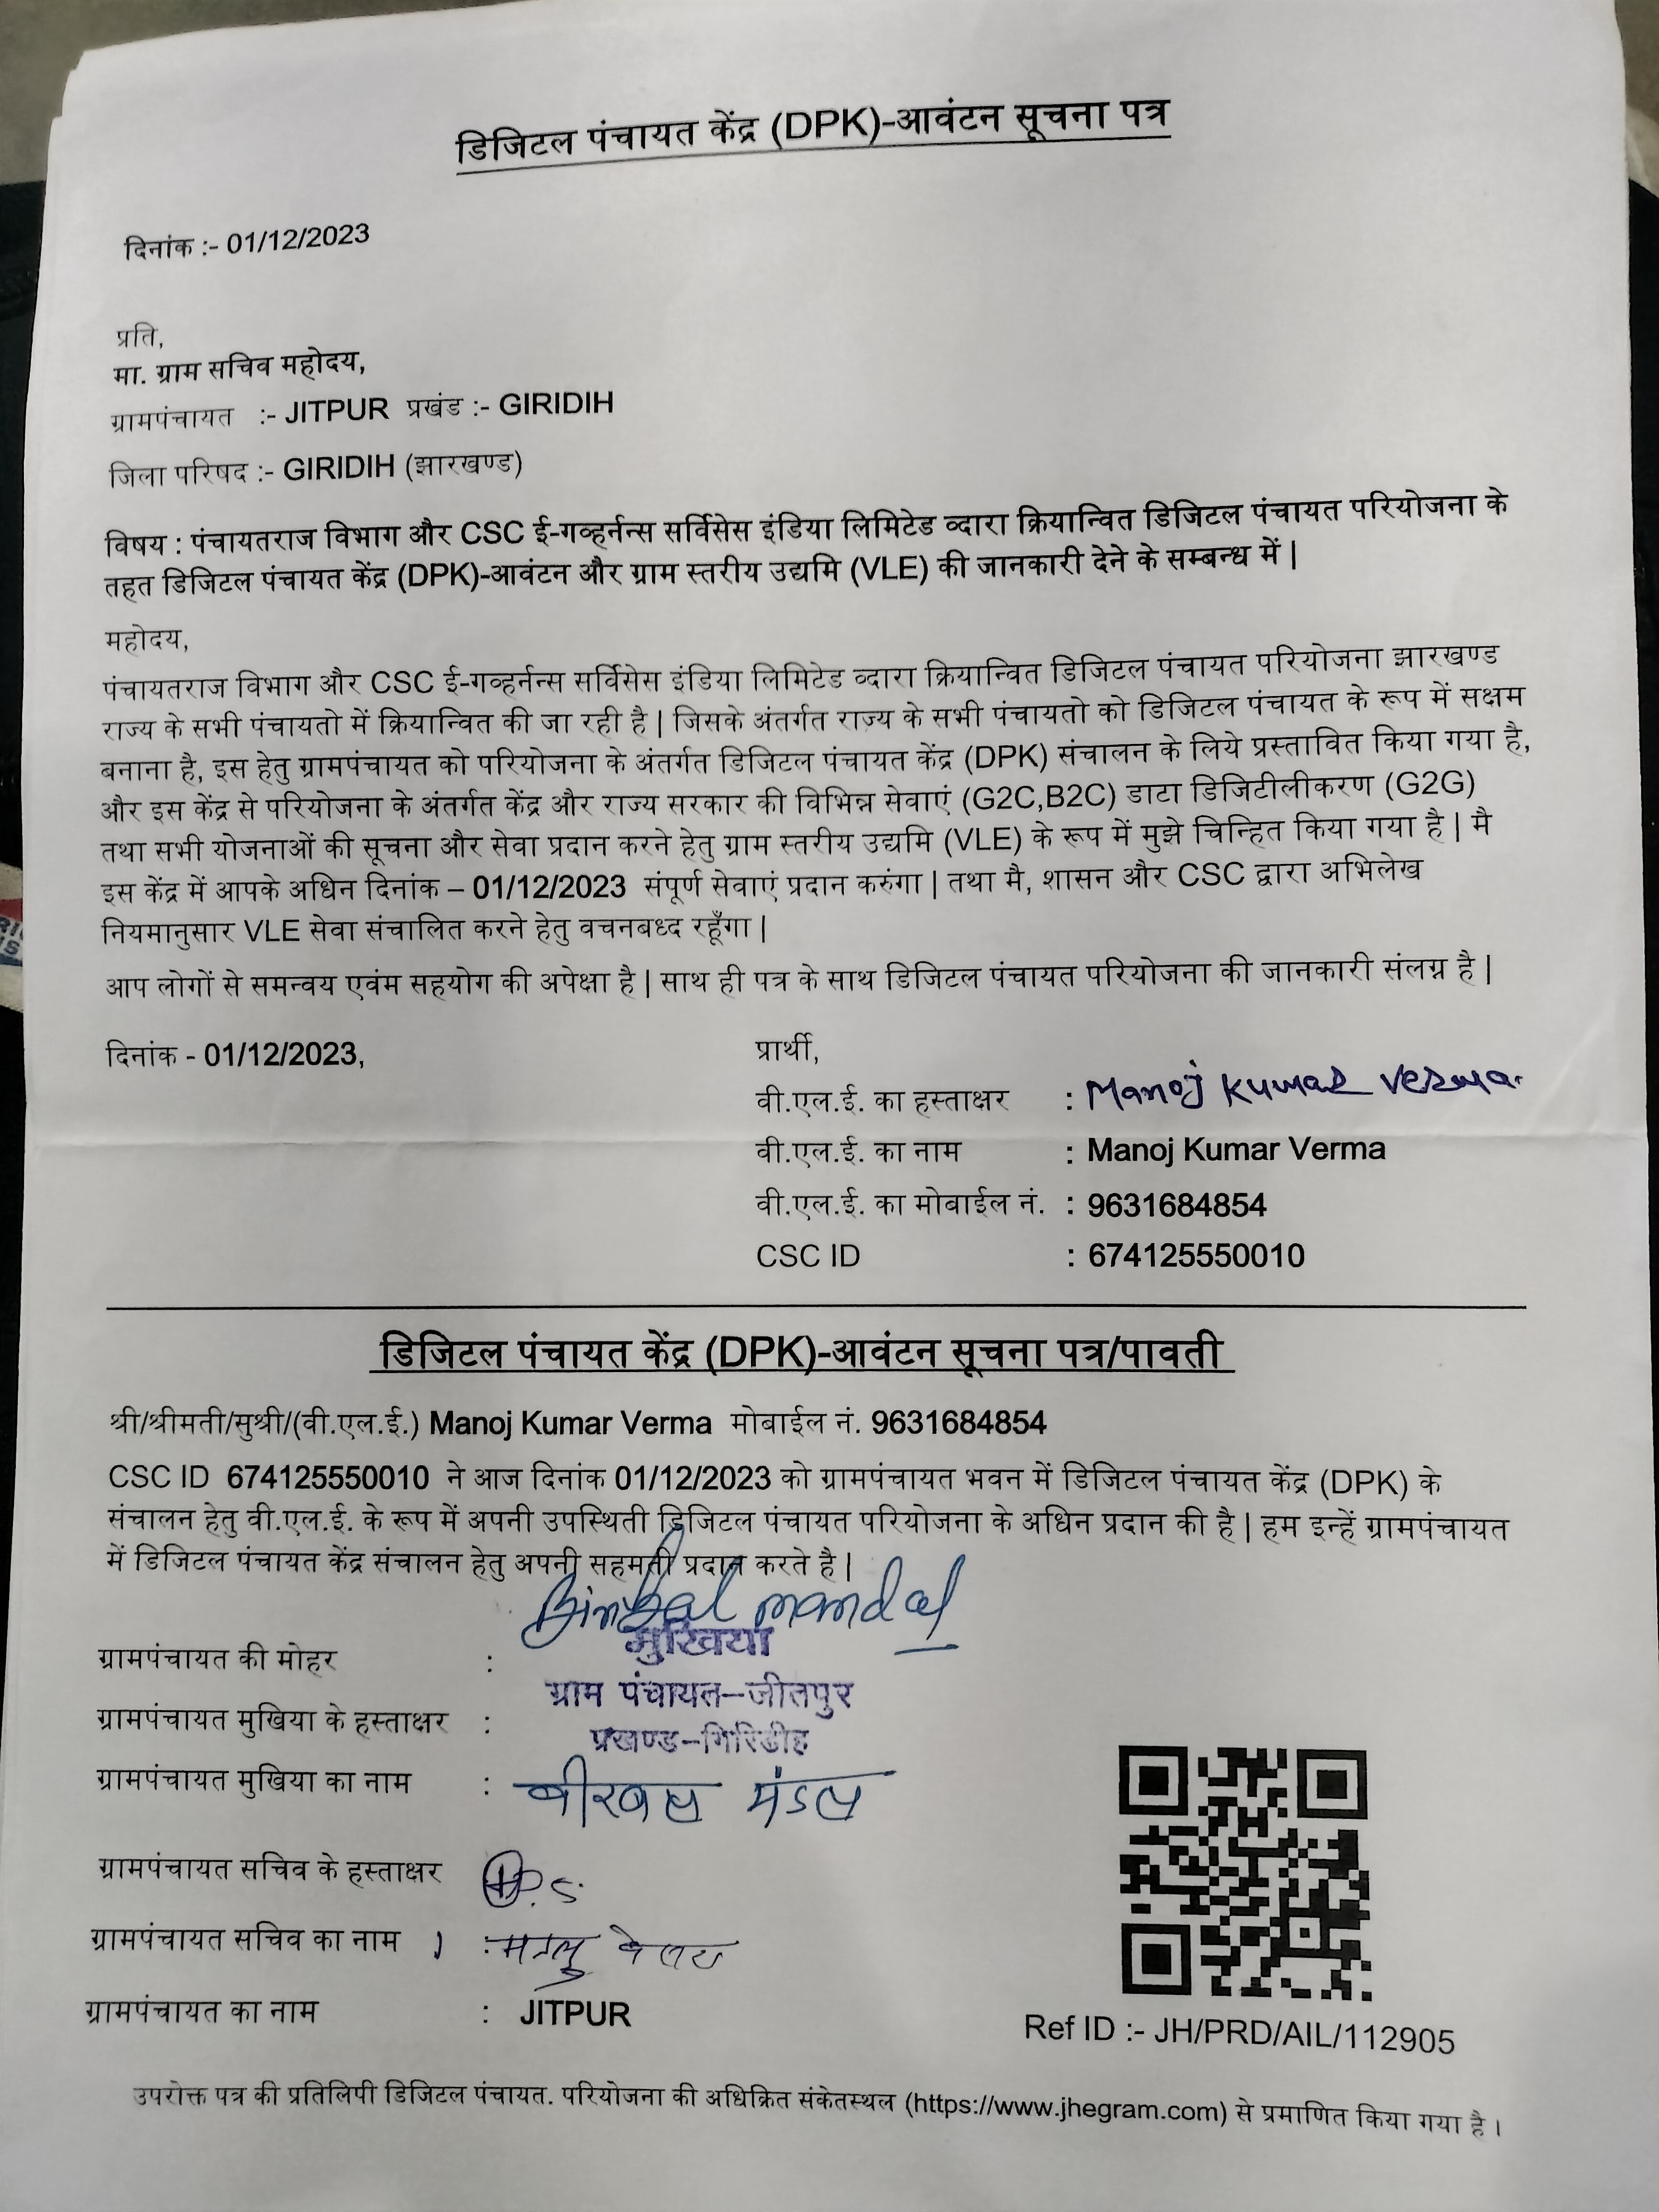 डिजिटल पंचायत केंद्र (DPK)-आवंटन सूचना पत्र
दिनांक :- 01/12/2023
प्रति,
मा. ग्राम सचिव महोदय,
ग्रामपंचायत :- JITPUR प्रखंड :- GIRIDIH
जिला परिषद :- GIRIDIH (झारखण्ड)
विषय : पंचायतराज विभाग और CSC ई-गव्हर्नन्स सर्विसेस इंडिया लिमिटेड व्दारा क्रियान्वित डिजिटल पंचायत परियोजना के
तहत डिजिटल पंचायत केंद्र (DPK)-आवंटन और ग्राम स्तरीय उद्यमि (VLE) की जानकारी देने के सम्बन्ध में |
महोदय,
पंचायतराज विभाग और CSC ई-गव्हर्नन्स सर्विसेस इंडिया लिमिटेड व्दारा क्रियान्वित डिजिटल पंचायत परियोजना झारखण्ड
राज्य के सभी पंचायतो में क्रियान्वित की जा रही है | जिसके अंतर्गत राज्य के सभी पंचायतो को डिजिटल पंचायत के रूप में सक्षम
बनाना है, इस हेतु ग्रामपंचायत को परियोजना के अंतर्गत डिजिटल पंचायत केंद्र (DPK) संचालन के लिये प्रस्तावित किया गया है,
और इस केंद्र से परियोजना के अंतर्गत केंद्र और राज्य सरकार की विभिन्न सेवाएं (G2C,B2C) डाटा डिजिटीलीकरण (G2G)
तथा सभी योजनाओं की सूचना और सेवा प्रदान करने हेतु ग्राम स्तरीय उद्यमि (VLE) के रूप में मुझे चिन्हित किया गया है | मै
इस केंद्र में आपके अधिन दिनांक – 01/12/2023 संपूर्ण सेवाएं प्रदान करुंगा | तथा मै, शासन और CSC द्वारा अभिलेख
नियमानुसार VLE सेवा संचालित करने हेतु वचनबध्द रहूँगा |
आप लोगों से समन्वय एवंम सहयोग की अपेक्षा है | साथ ही पत्र के साथ डिजिटल पंचायत परियोजना की जानकारी संलग्न है |
दिनांक - 01/12/2023,
प्रार्थी,
वी.एल.ई. का हस्ताक्षर : Manoj Kumar Verma
वी.एल.ई. का नाम : Manoj Kumar Verma
वी.एल.ई. का मोबाईल नं. : 9631684854
CSC ID : 674125550010
डिजिटल पंचायत केंद्र (DPK)-आवंटन सूचना पत्र/पावती
श्री/श्रीमती/सुश्री/(वी.एल.ई.) Manoj Kumar Verma मोबाईल नं. 9631684854
CSC ID 674125550010 ने आज दिनांक 01/12/2023 को ग्रामपंचायत भवन में डिजिटल पंचायत केंद्र (DPK) के
संचालन हेतु वी.एल.ई. के रूप में अपनी उपस्थिती डिजिटल पंचायत परियोजना के अधिन प्रदान की है | हम इन्हें ग्रामपंचायत
में डिजिटल पंचायत केंद्र संचालन हेतु अपनी सहमती प्रदान करते है |
mandal
मुखिया
ग्रामपंचायत की मोहर :
ग्राम पंचायत–जीतपुर
ग्रामपंचायत मुखिया के हस्ताक्षर :
प्रखण्ड–गिरिडीह
ग्रामपंचायत मुखिया का नाम : बीरबल मंडल
ग्रामपंचायत सचिव के हस्ताक्षर
ग्रामपंचायत सचिव का नाम :
ग्रामपंचायत का नाम : JITPUR
Ref ID :- JH/PRD/AIL/112905
उपरोक्त पत्र की प्रतिलिपी डिजिटल पंचायत. परियोजना की अधिक्रित संकेतस्थल (https://www.jhegram.com) से प्रमाणित किया गया है ।